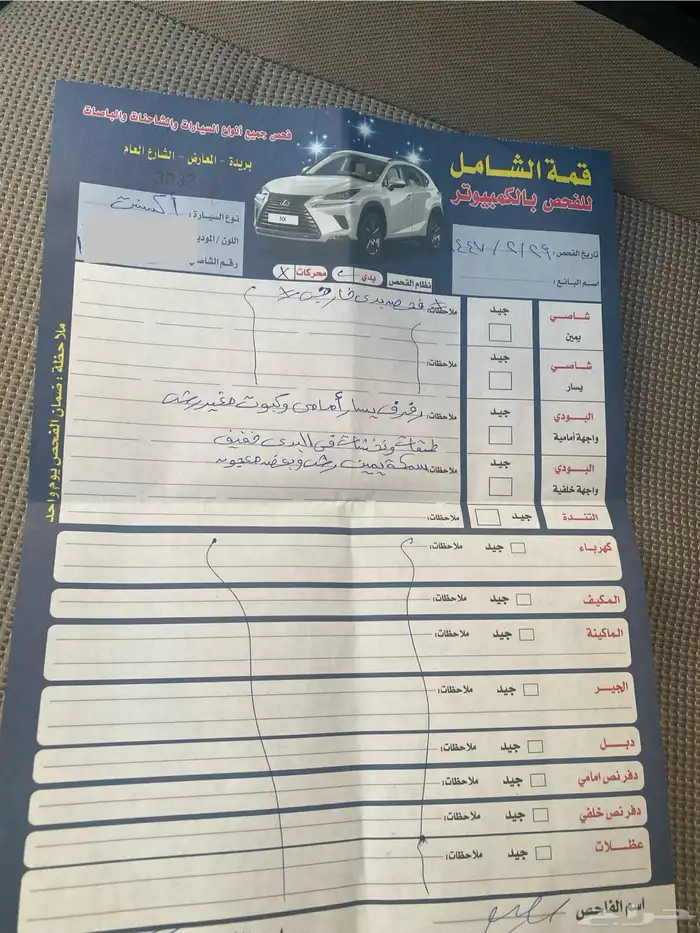 فحص جميع أنواع السيارات والشاحنات والباصات
بريدة - المعارض - الشارع العام
3032
قمة الشامل
للفحص بالكمبيوتر
NX
نوع السيارة: اكسنت
اللون / المودي
رقم الشاصي
تاريخ الفحص: ٢٩/٢/٤٤٧
اسم البائع:
نظام الفحص
بدي
محركات X
ملاحظة: ضمان الفحص يوم واحد
شاصي يمين
جيد
ملاحظات: فحص بدي خارجي X
شاصي يسار
جيد
ملاحظات:
البودي واجهة امامية
جيد
ملاحظات: رفرف يسار أمامي وكبوت مغير رش
طبقات وخدشات في البدي خفيف
البودي واجهة خلفية
جيد
ملاحظات: سمكة يمين رش وبعض معجونه
التندة
جيد
ملاحظات:
كهرباء
جيد
ملاحظات:
المكيف
جيد
ملاحظات:
الماكينة
جيد
ملاحظات:
الجير
جيد
ملاحظات:
دبل
جيد
ملاحظات:
دفرنص امامي
جيد
ملاحظات:
دفرنص خلفي
جيد
ملاحظات:
عضلات
جيد
ملاحظات:
اسم الفاحص
حراج